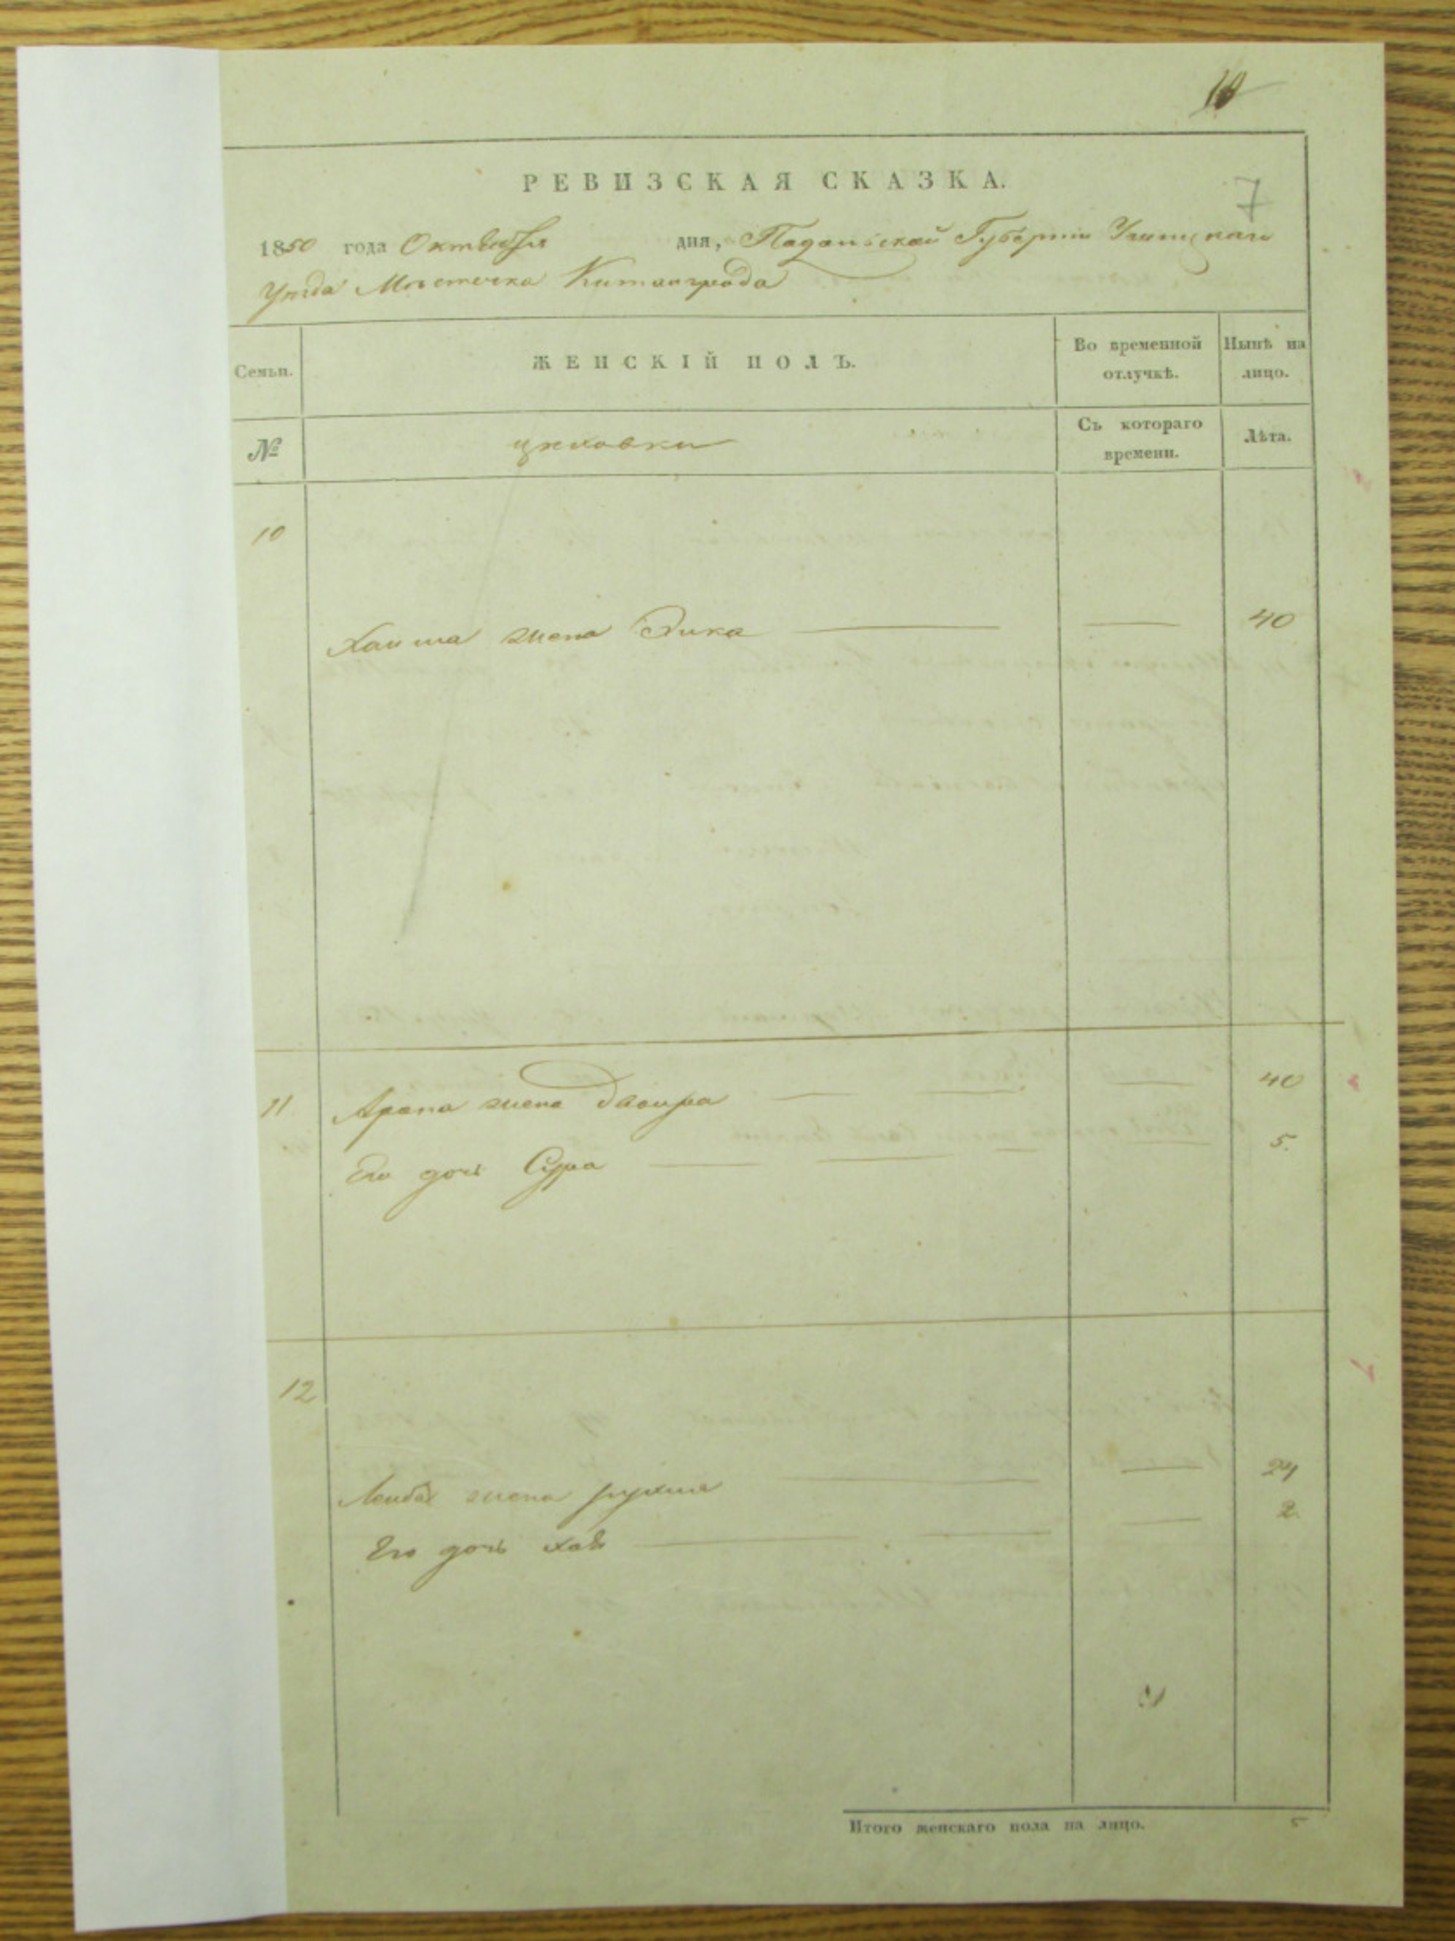 10
РЕВИЗСКАЯ СКАЗКА.
7
1850 года Октября дня, Подольской Губернии Ушицкаго
Уезда Местечка Китайгрода
Семьи. ЖЕНСКІЙ ПОЛЪ. Во временной отлучкѣ. Нынѣ на лицо.
№ Съ котораго времени. Лѣта.
10
жена Эика 40
11 Арона жена Двойра 40
Его дочь Сура 5.
12
Лейба жена рухля 24
Его дочь хая 2
Итого женскаго пола на лицо. 5